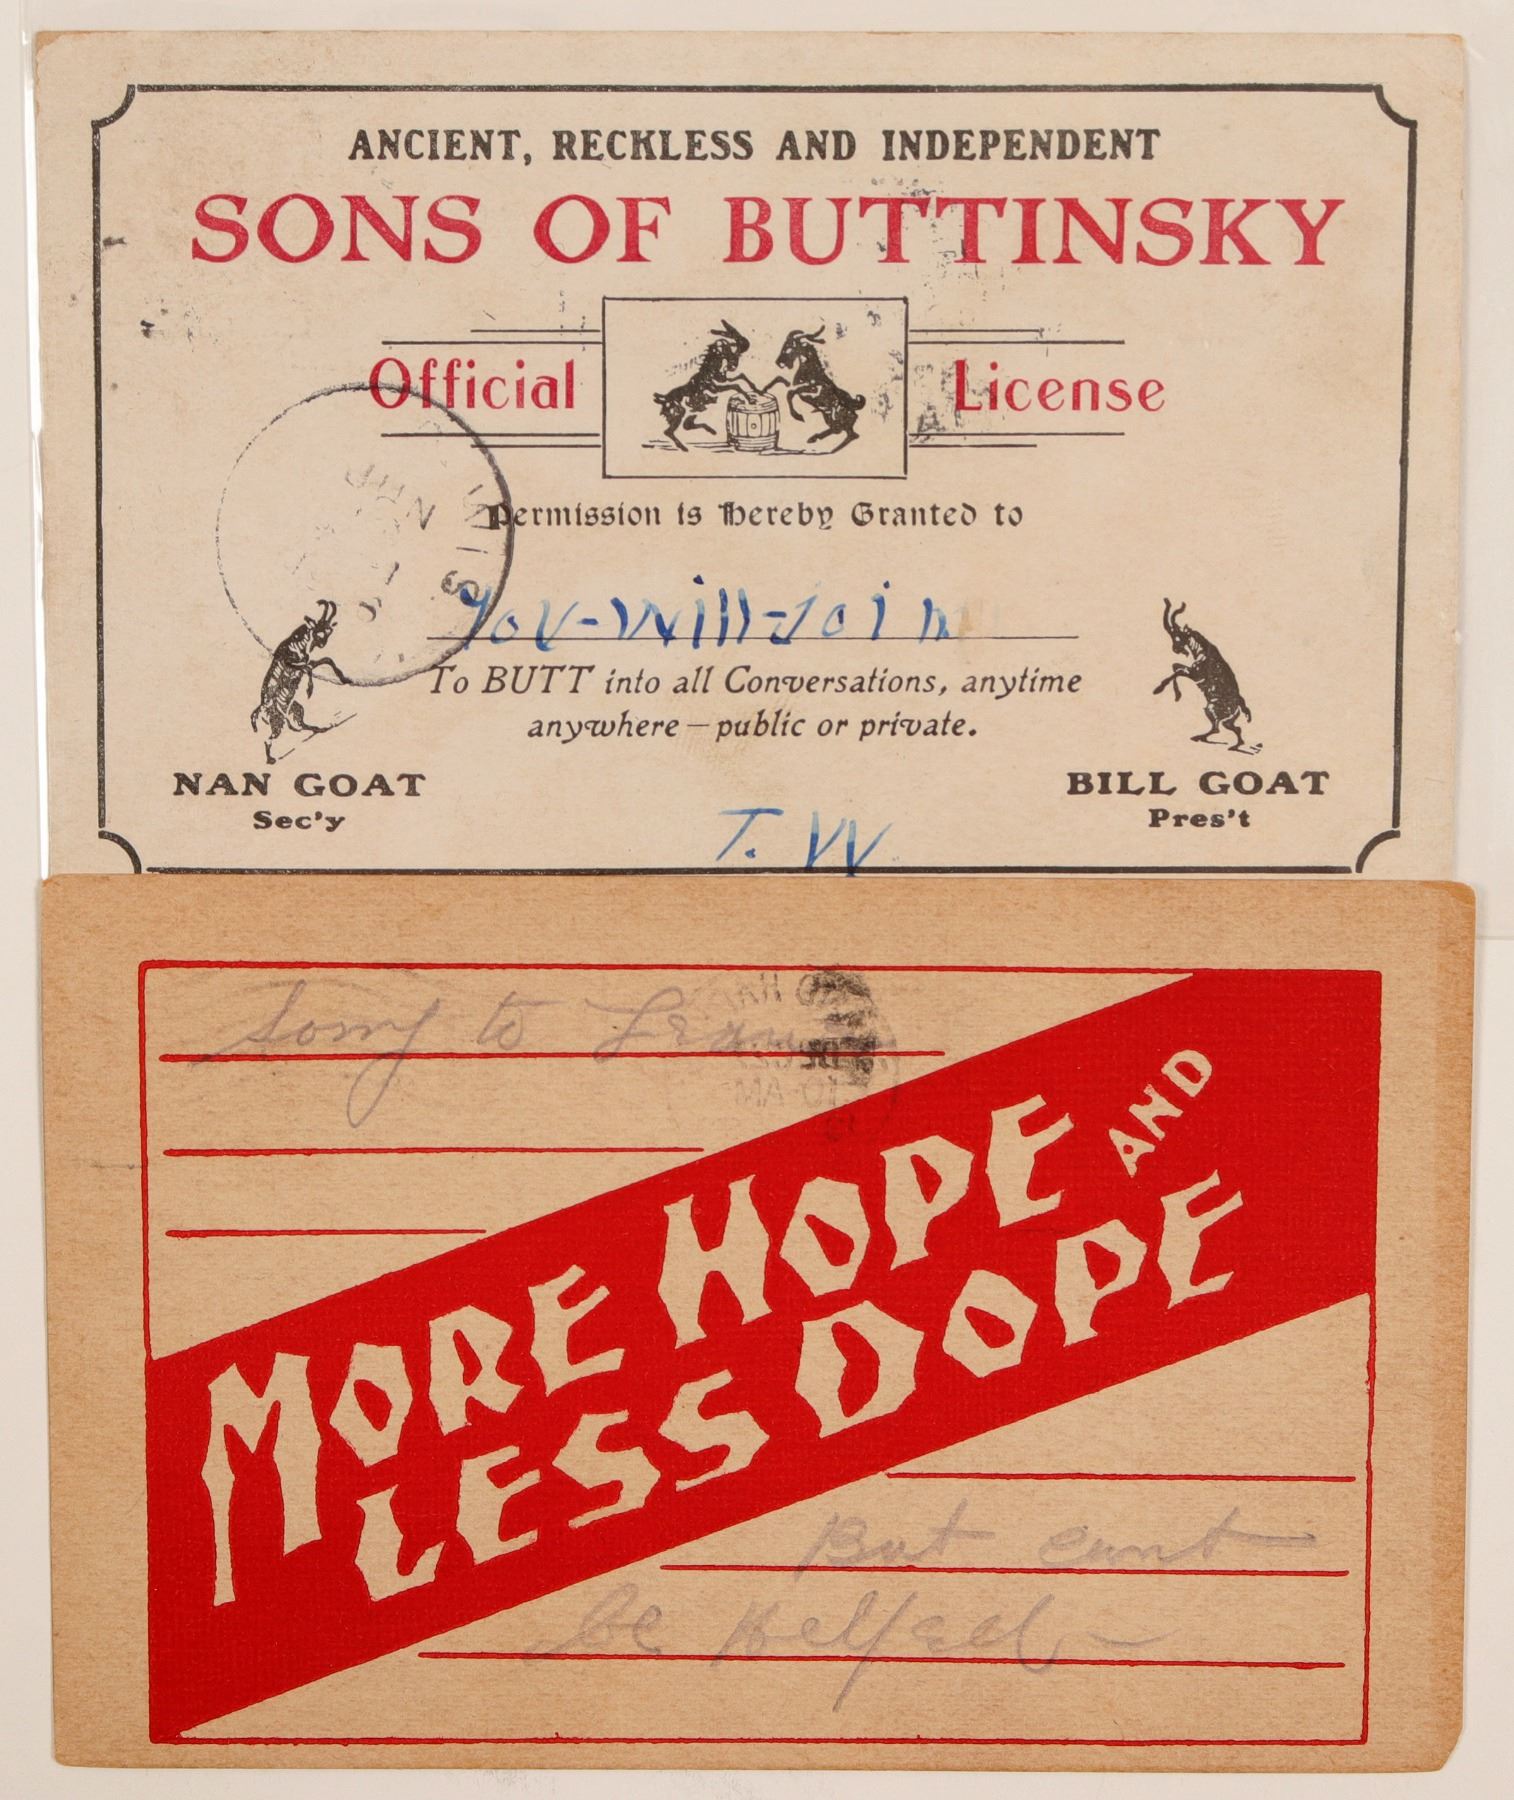 ANCIENT, RECKLESS AND INDEPENDENT
SONS OF BUTTINSKY
Official License
Permission is Hereby Granted to
You-Will-Join
To BUTT into all Conversations, anytime
anywhere — public or private.
NAN GOAT
Sec'y
BILL GOAT
Pres't
T. W.
JUN
WIS
Sorry to
MORE HOPE AND
LESS DOPE
But cant
be Helped -